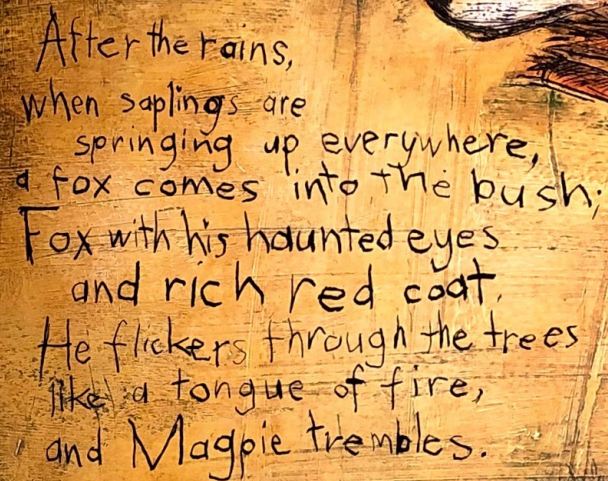 After the rains,
when saplings are
springing up everywhere,
a fox comes into the bush;
Fox with his haunted eyes
and rich red coat.
He flickers through the trees
like a tongue of fire,
and Magpie trembles.